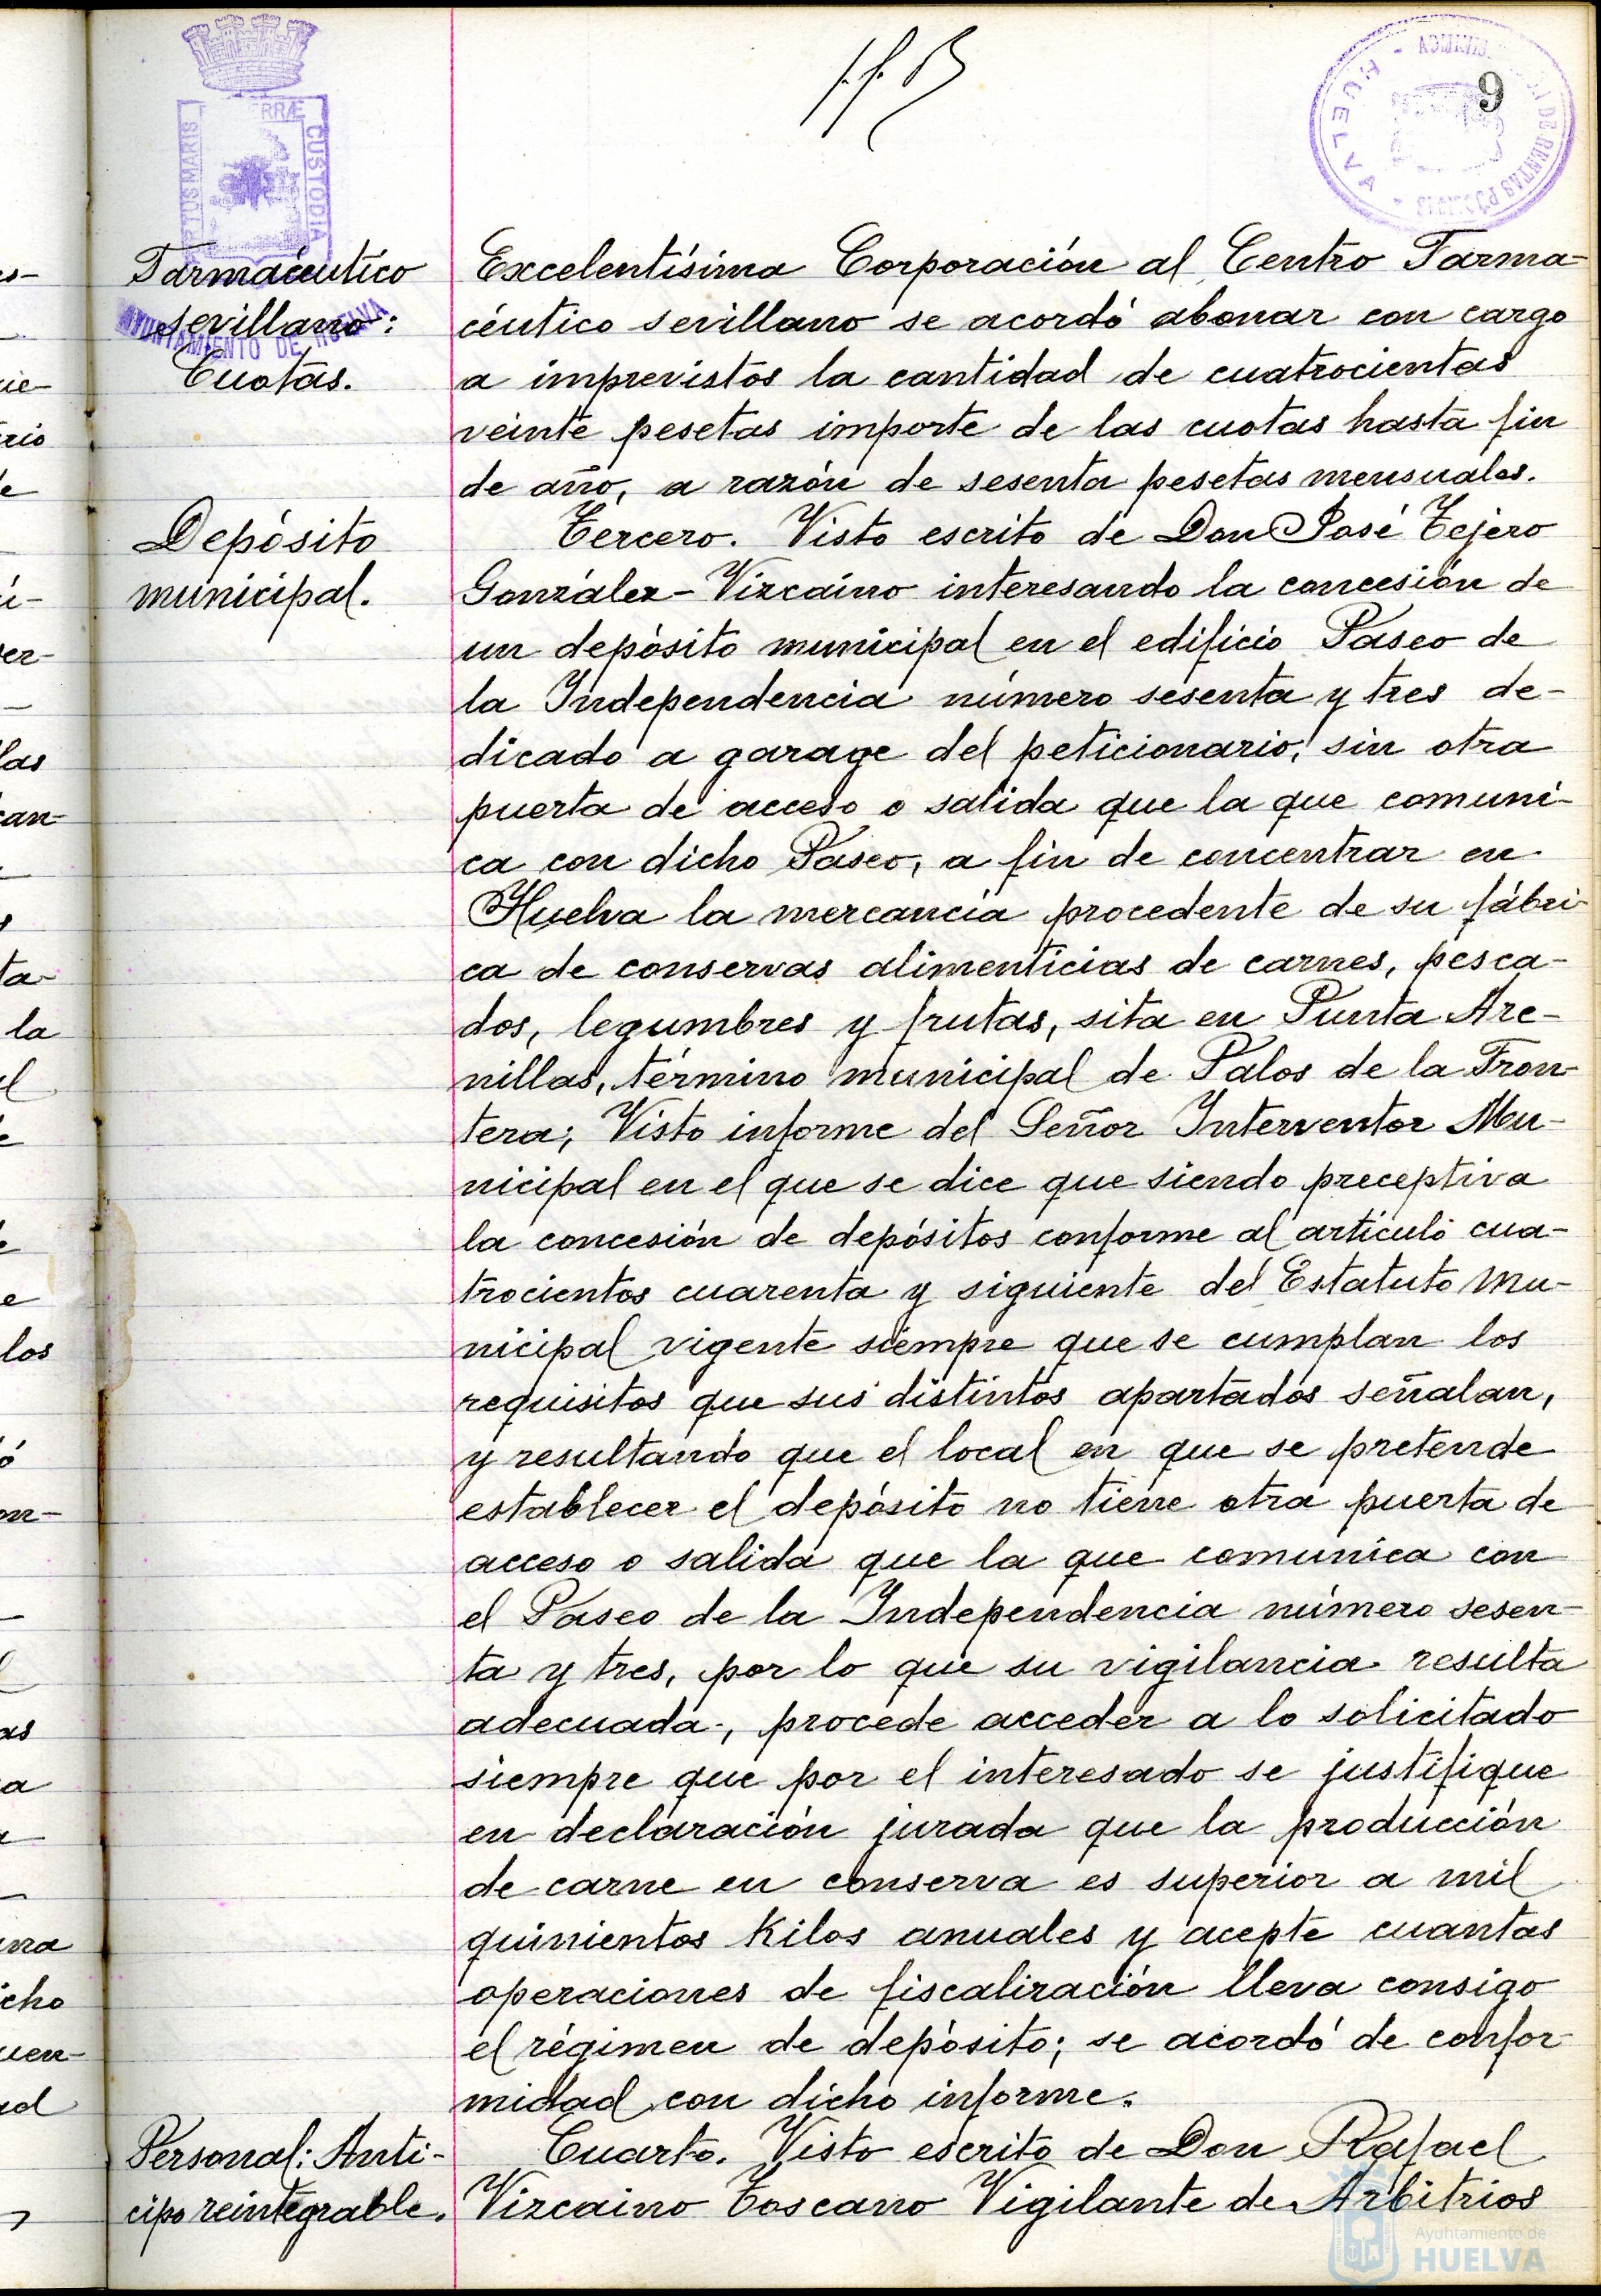 9
Farmacéutico
sevillano:
Cuotas.
Excelentísima Corporación al Centro Farma-
céutico sevillano se acordó abonar con cargo
a imprevistos la cantidad de cuatrocientas
veinte pesetas importe de las cuotas hasta fin
de año, a razón de sesenta pesetas mensuales.
Depósito
municipal.
Tercero. Visto escrito de Don José Tejero
González-Vizcaíno interesando la concesión de
un depósito municipal en el edificio Paseo de
la Independencia número sesenta y tres de-
dicado a garage del peticionario, sin otra
puerta de acceso o salida que la que comuni-
ca con dicho Paseo, a fin de concentrar en
Huelva la mercancía procedente de su fábri-
ca de conservas alimenticias de carnes, pesca-
dos, legumbres y frutas, sita en Punta Are-
nillas, término municipal de Palos de la Fron-
tera; Visto informe del Señor Interventor Mu-
nicipal en el que se dice que siendo preceptiva
la concesión de depósitos conforme al artículo cua-
trocientos cuarenta y siguiente del Estatuto Mu-
nicipal vigente siempre que se cumplan los
requisitos que sus distintos apartados señalan,
y resultando que el local en que se pretende
establecer el depósito no tiene otra puerta de
acceso o salida que la que comunica con
el Paseo de la Independencia número sesen-
ta y tres, por lo que su vigilancia resulta
adecuada, procede acceder a lo solicitado
siempre que por el interesado se justifique
en declaración jurada que la producción
de carne en conserva es superior a mil
quinientos Kilos anuales y acepte cuantas
operaciones de fiscalización lleva consigo
el régimen de depósito; se acordó de confor-
midad con dicho informe.
Personal: Anti-
cipo reintegrable.
Cuarto. Visto escrito de Don Rafael
Vizcaino Toscano Vigilante de Arbitrios
AYUNTAMIENTO DE HUELVA
CUSTODIA
HUELVA
Ayuntamiento de
HUELVA